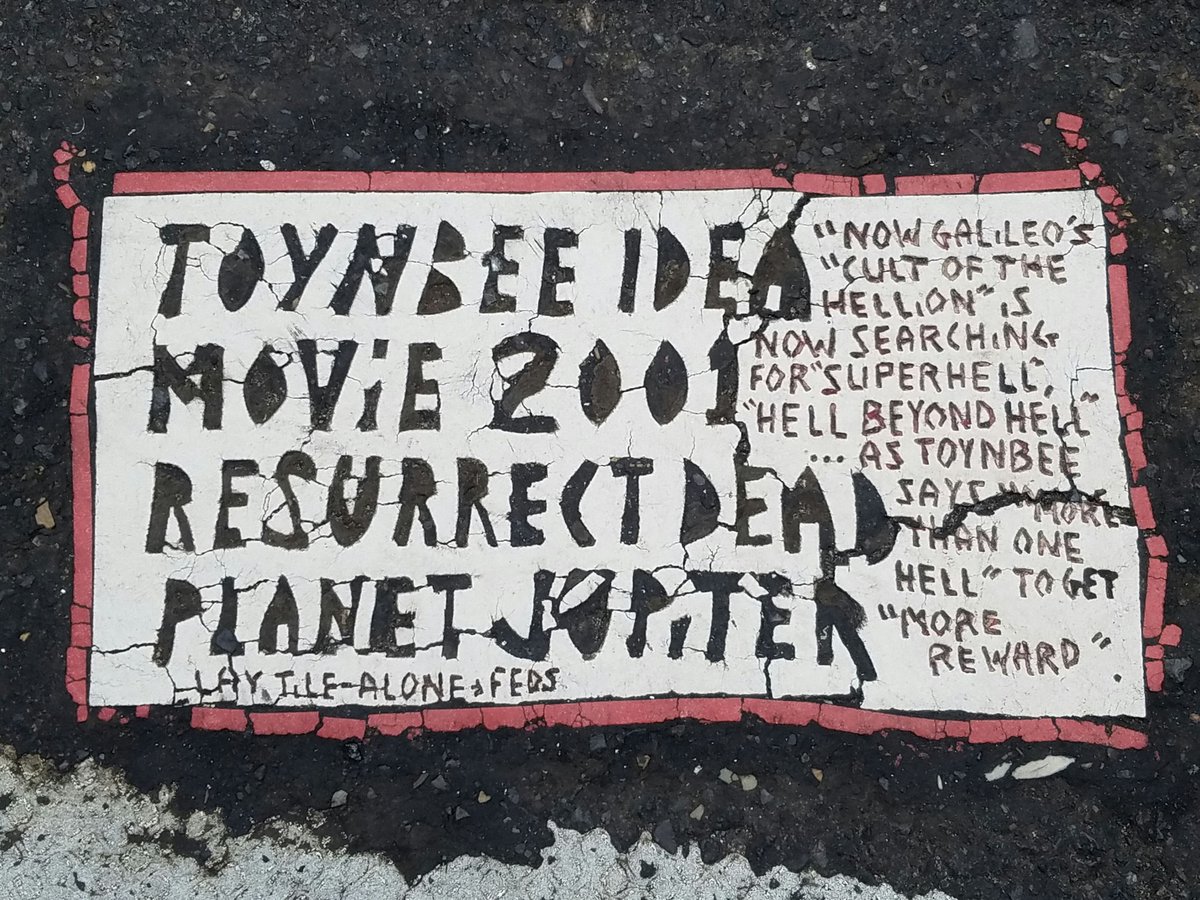 TOYNBEE IDEA
MOViE 2001
RESURRECT DEAD
PLANET JUPiTER
LAY TiLE-ALONE→FEDS
"NOW GALiLEO'S
"CULT OF THE
HELLiON" iS
NOW SEARCHiNG
FOR "SUPERHELL",
"HELL BEYOND HELL"
... AS TOYNBEE
SAYS
MORE
THAN ONE
HELL" TO GET
"MORE
REWARD".